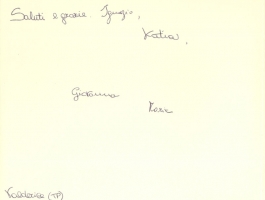 Saluti e grazie. Ignazio,
Katia,
Giovanna
Valderice (TP)